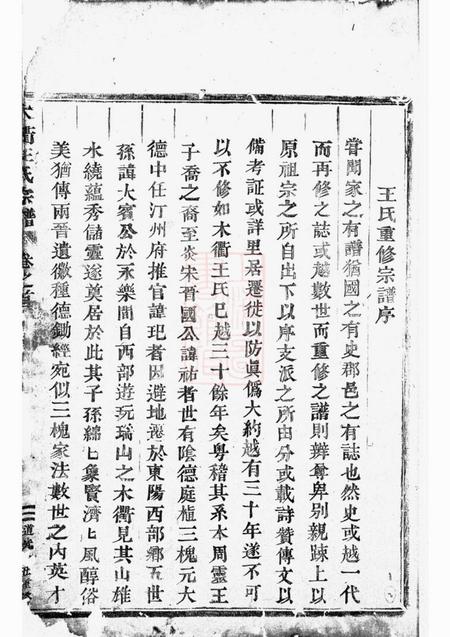 王氏重修宗譜序
嘗聞家之有譜猶國之有史郡邑之有誌也然史或越一代
而再修之誌或越數世而重修之譜則辨尊卑别親踈上以
原祖宗之所自出下以序支派之所由分或載詩贊傳文以
備考証或詳里居遷徙以防眞僞大約越有三十年遂不可
以不修如木衢王氏已越三十餘年矣粤稽其系本周靈王
子喬之裔至炎宋晋國公諱祐者世有陰德庭植三槐元大
德中任汀州府推官諱玘者因避地遷於東陽西部鄉五世
孫諱大賓公於永樂間自西部遊玩瑞山之木衢見其山雄
水繞蘊秀儲靈遂奠居於此其子孫綿匕集賢濟匕風醇俗
美猶傳兩晉遺徽種德鋤經宛似三槐家法數世之内英才
木衢王氏宗譜